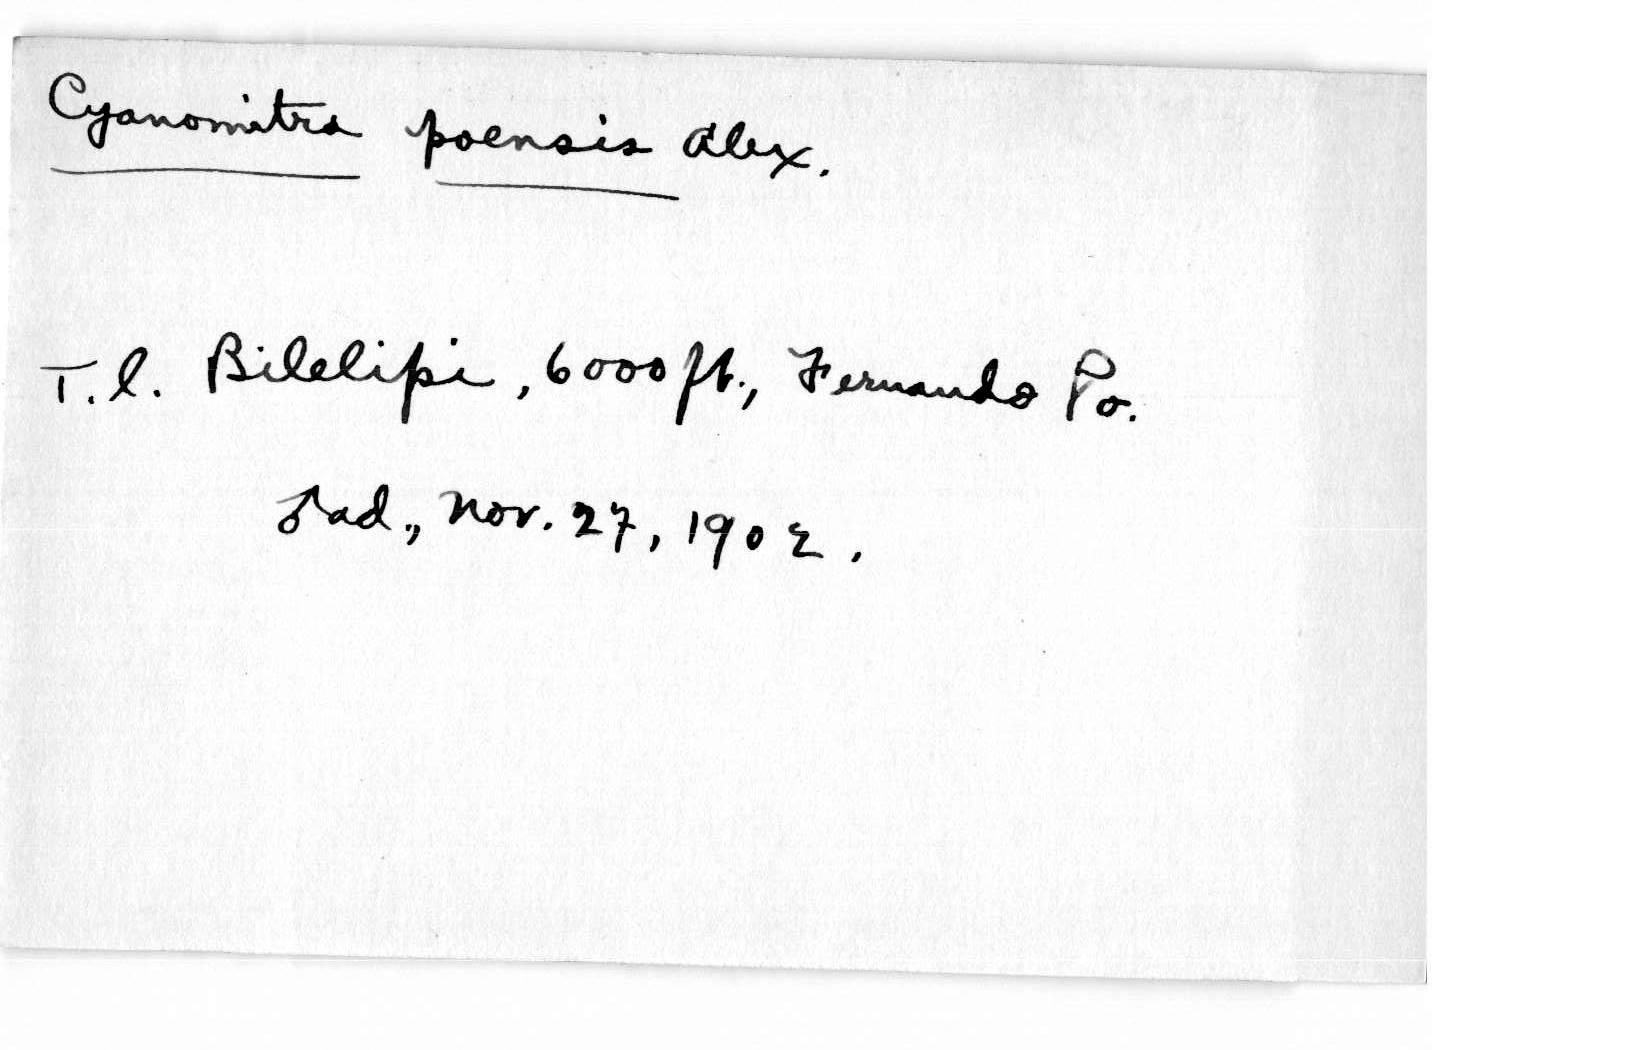 Cyanomitra poensis Alex.
T.l. Bilelipi, 6000 ft., Fernando Po.
♂ad., Nov. 27, 1902.